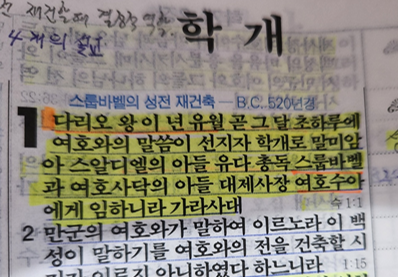 재건할때
4개의 설교
학 개
스룹바벨의 성전 재건축 — B.C. 520년경
1 다리오 왕 이 년 유월 곧 그 달 초하루에
여호와의 말씀이 선지자 학개로 말미암
아 스알디엘의 아들 유다 총독 스룹바벨
과 여호사닥의 아들 대제사장 여호수아
에게 임하니라 가라사대 슥 1:1
2 만군의 여호와가 말하여 이르노라 이 백
성이 말하기를 여호와의 전을 건축할 시
이르지 아니하였다 하느니라 1:15